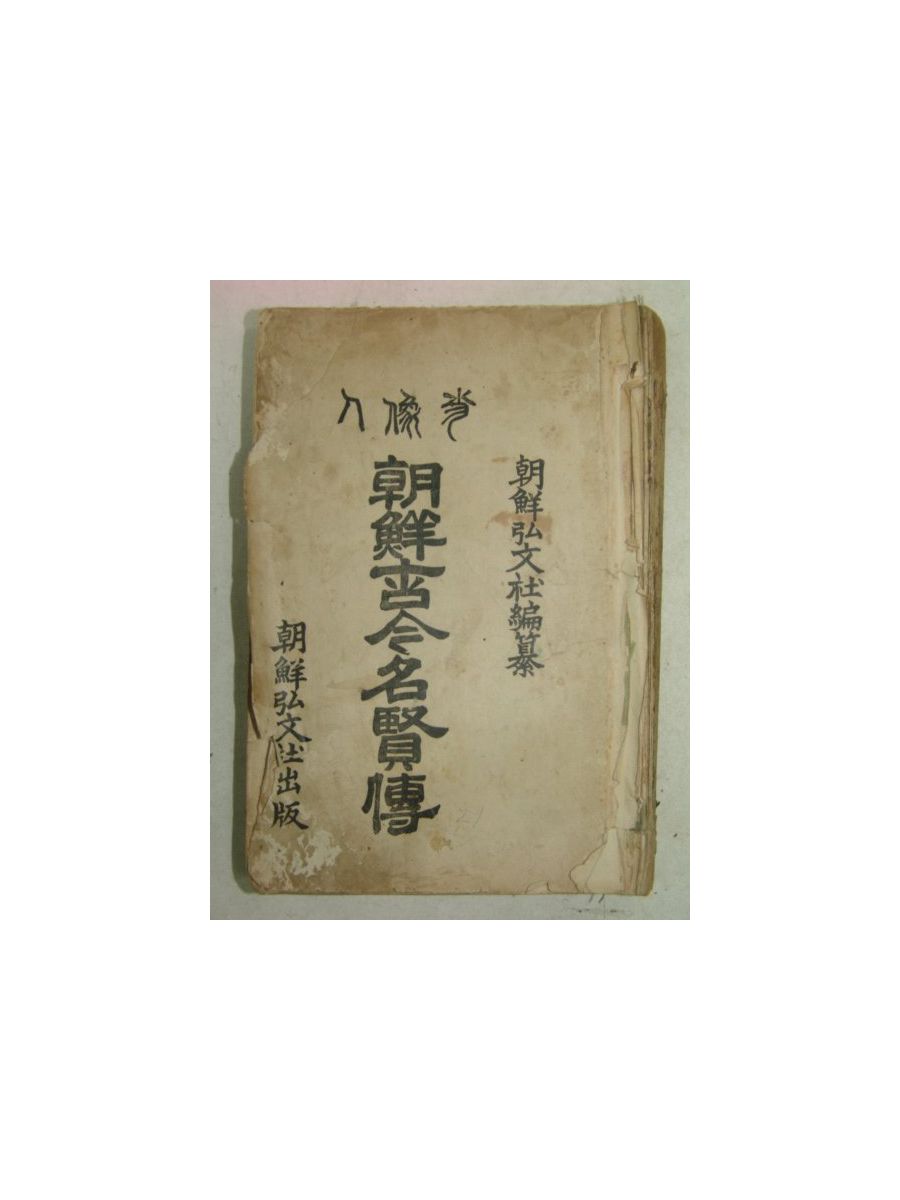 肖像入
朝鮮弘文社編纂
朝鮮古今名賢傳
朝鮮弘文社出版
21